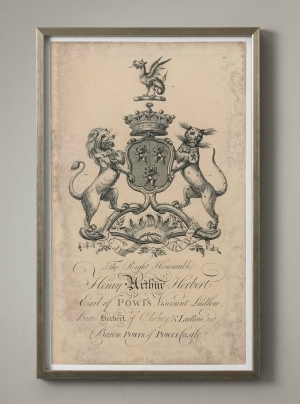 The Right Honourable
Henry Arthur Herbert
Earl of Powis Viscount Ludlow
Baron Herbert of Chirbury & Ludlow and
Baron Powis of Powis Castle